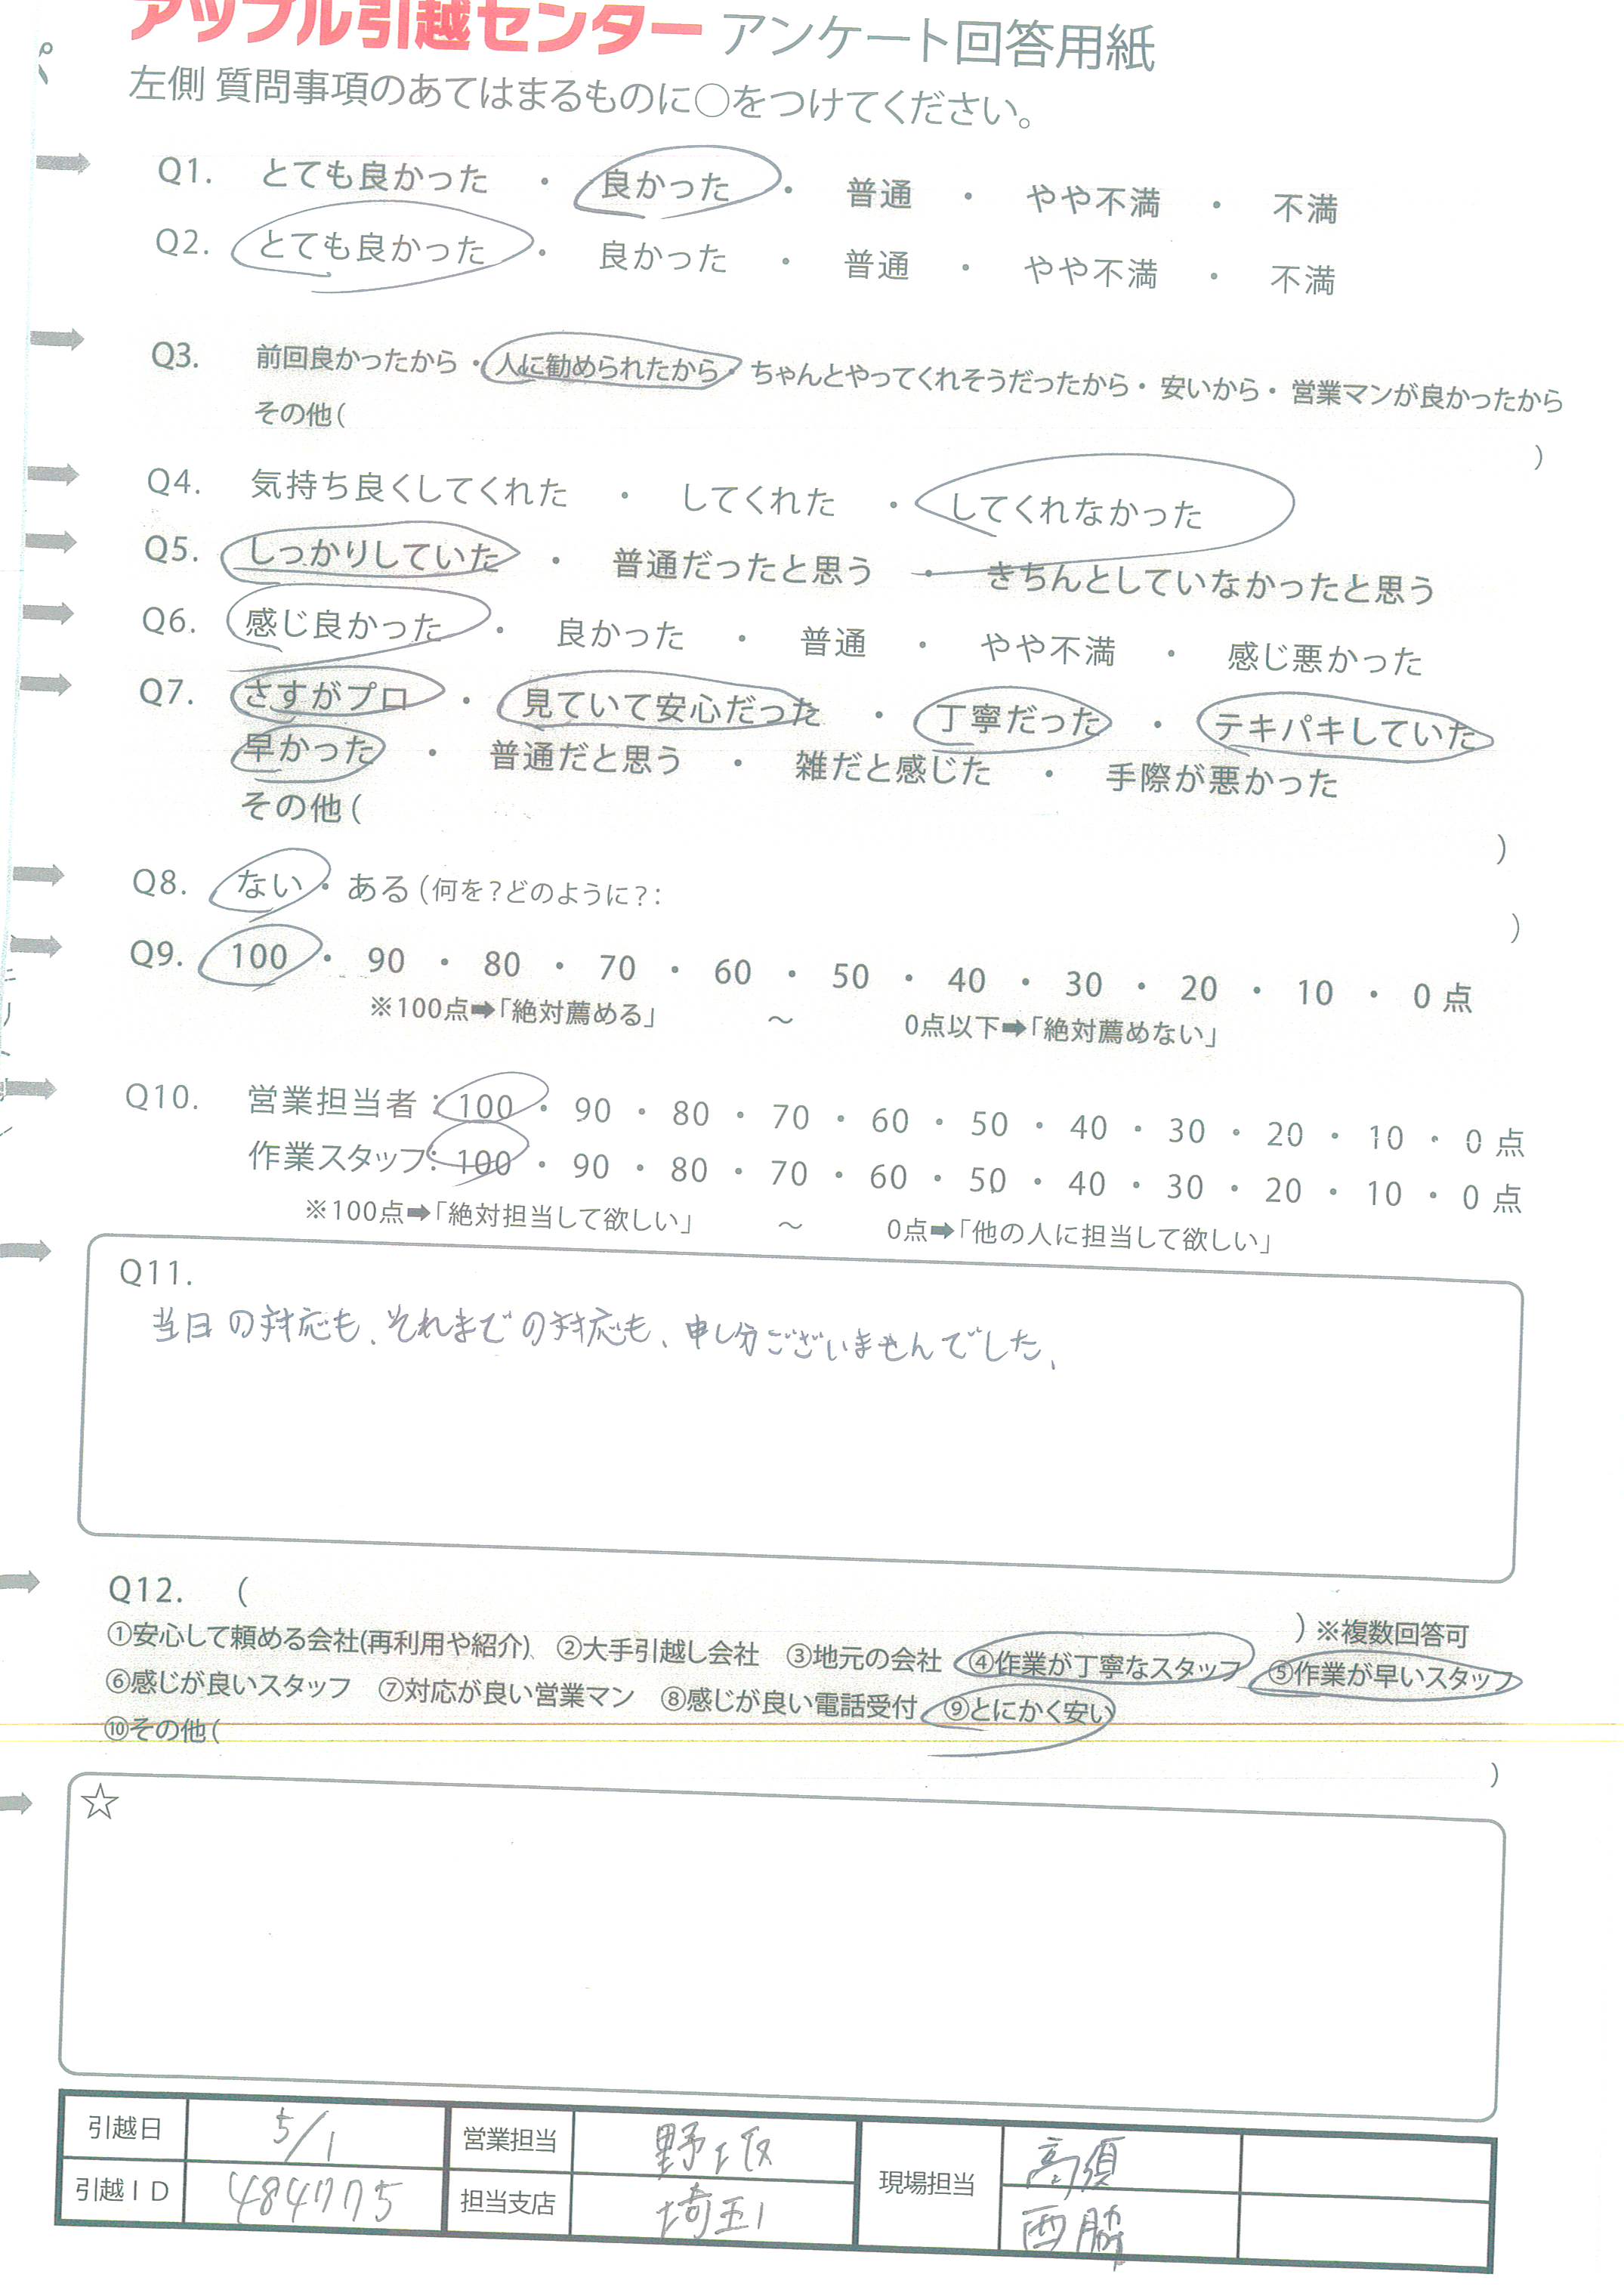 アップル引越センター アンケート回答用紙
左側 質問事項のあてはまるものに○をつけてください。
Q1. とても良かった ・ 良かった ・ 普通 ・ やや不満 ・ 不満
Q2. とても良かった ・ 良かった ・ 普通 ・ やや不満 ・ 不満
Q3. 前回良かったから ・ 人に勧められたから ・ ちゃんとやってくれそうだったから ・ 安いから ・ 営業マンが良かったから
その他( )
Q4. 気持ち良くしてくれた ・ してくれた ・ してくれなかった
Q5. しっかりしていた ・ 普通だったと思う ・ きちんとしていなかったと思う
Q6. 感じ良かった ・ 良かった ・ 普通 ・ やや不満 ・ 感じ悪かった
Q7. さすがプロ ・ 見ていて安心だった ・ 丁寧だった ・ テキパキしていた
早かった ・ 普通だと思う ・ 雑だと感じた ・ 手際が悪かった
その他( )
Q8. ない ・ ある(何を?どのように?: )
Q9. 100 ・ 90 ・ 80 ・ 70 ・ 60 ・ 50 ・ 40 ・ 30 ・ 20 ・ 10 ・ 0 点
※100点➡「絶対薦める」 ～ 0点以下➡「絶対薦めない」
Q10. 営業担当者:100 ・ 90 ・ 80 ・ 70 ・ 60 ・ 50 ・ 40 ・ 30 ・ 20 ・ 10 ・ 0 点
作業スタッフ:100 ・ 90 ・ 80 ・ 70 ・ 60 ・ 50 ・ 40 ・ 30 ・ 20 ・ 10 ・ 0 点
※100点➡「絶対担当して欲しい」 ～ 0点➡「他の人に担当して欲しい」
Q11.
当日の対応も、それまでの対応も、申し分ございませんでした、
Q12. ( ) ※複数回答可
①安心して頼める会社(再利用や紹介) ②大手引越し会社 ③地元の会社 ④作業が丁寧なスタッフ ⑤作業が早いスタッフ
⑥感じが良いスタッフ ⑦対応が良い営業マン ⑧感じが良い電話受付 ⑨とにかく安い
⑩その他( )
☆
引越日 5/1 営業担当 野坂 現場担当 高須
引越ID 484775 担当支店 埼玉 西脇